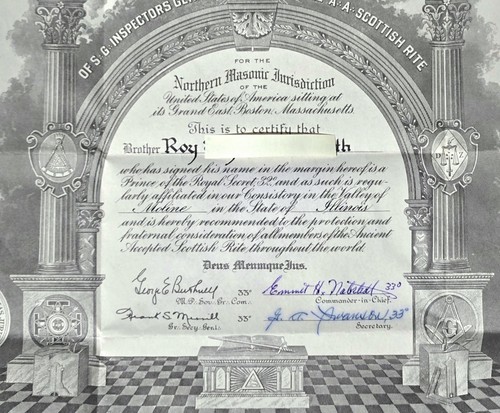 OF S.G. INSPECTORS GE A.A. SCOTTISH RITE
FOR THE
Northern Masonic Jurisdiction
OF THE
United States of America sitting at
its Grand East, Boston, Massachusetts.
This is to certify that
Brother Roy th
who has signed his name in the margin hereof is a
Prince of the Royal Secret 32º and as such is regu-
larly affiliated in our Consistory in the Valley of
Moline in the State of Illinois
and is hereby recommended to the protection and
fraternal consideration of all members of the Ancient
Accepted Scottish Rite throughout the world.
Deus Meumque Jus.
George E Bushnell 33º Emmit H. 33º
M.P. Sov. Gr. Com. Commander-in-Chief.
Frank S Merrill 33º Swanson 33º
Gr. Secy. Genl. Secretary.